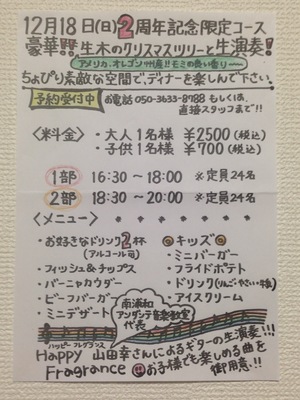 12月18日(日)2周年記念限定コース
豪華!!生木のクリスマスツリーと生演奏!
アメリカ、オレゴン州産!!モミの良い香り〜
ちょぴり素敵な空間で、ディナーを楽しんで下さい。
予約受付中 お電話050-3633-8788 もしくは、
直接スタッフまで!!
〈料金〉
・大人1名様 ¥2500(税込)
・子供1名様 ¥700(税込)
1部 16:30〜18:00 ※定員24名
2部 18:30〜20:00 ※定員24名
〈メニュー〉
・お好きなドリンク2杯
(アルコール可)
・フィッシュ&チップス
・バーニャカウダー
・ビーフバーガー
・ミニデザート
◎キッズ◎
・ミニバーガー
・フライドポテト
・ドリンク(りんご・やさい・桃)
・アイスクリーム
南浦和
アンダンテ音楽教室
代表
ハッピーフレグランス
Happy Fragrance
山田幸さんによるギターの生演奏!!!
お子様でも楽しめる曲を
御用意!!